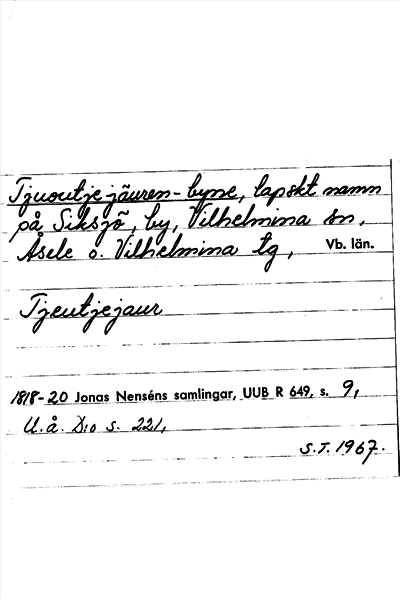 Tjuoutje-jäuren-byne, lapskt namn
på Siksjö, by, Vilhelmina sn,
Åsele o. Vilhelmina tg, Vb. län.
Tjeutjejaur
1818-20 Jonas Nenséns samlingar, UUB R 649, s. 9,
U.å. D:o s. 221,
S.T. 1967.